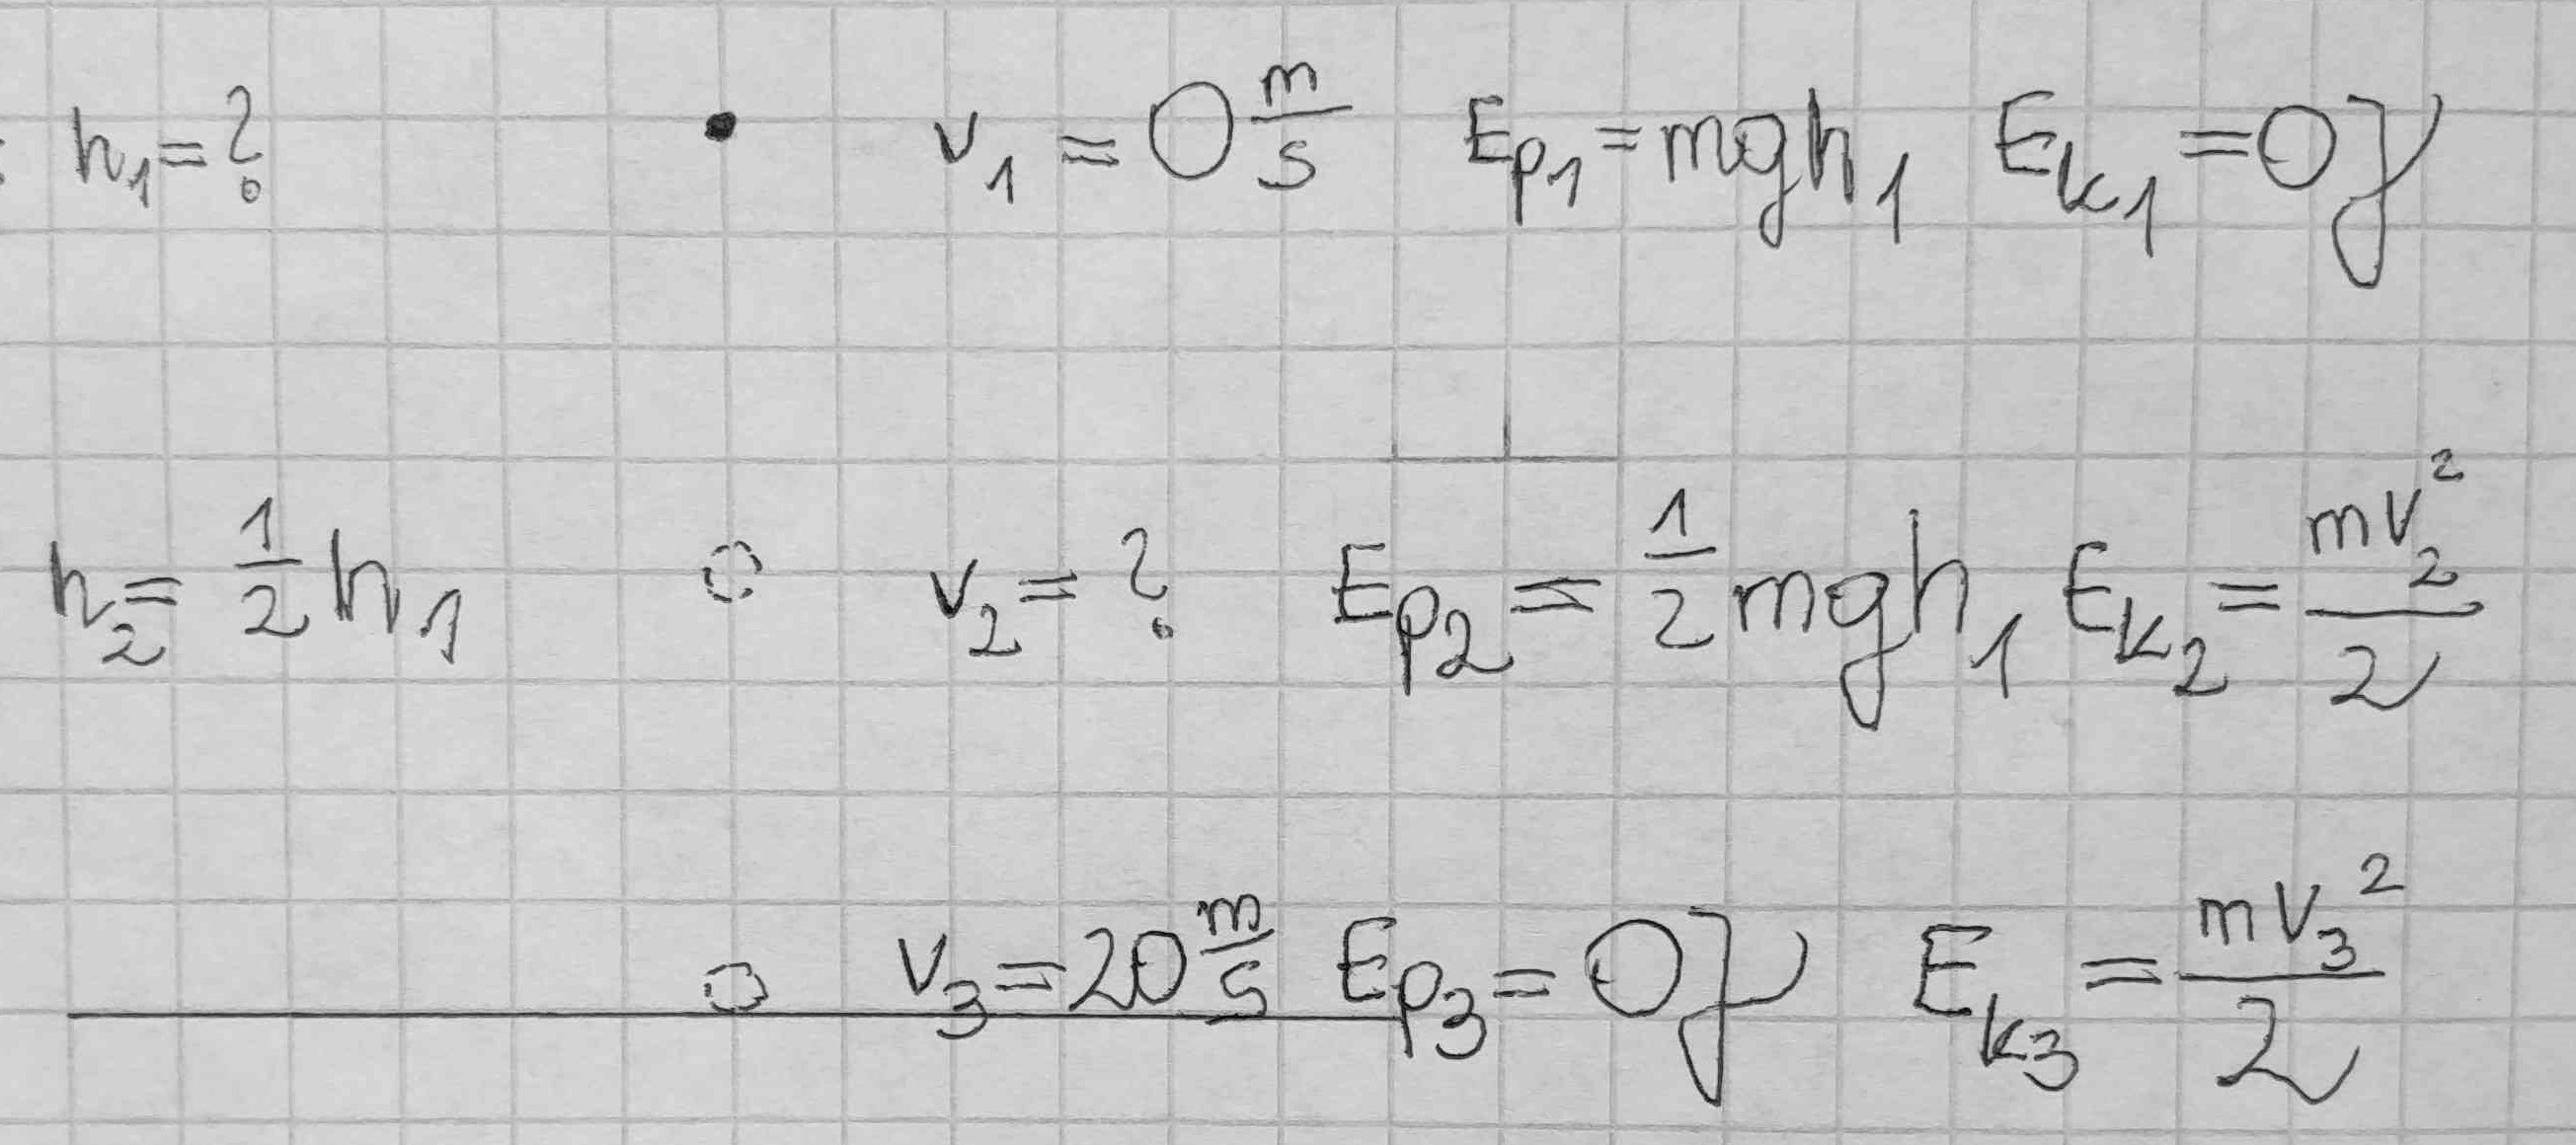 h₁=? v₁ = 0 m/s Eₚ₁ = mgh₁ Eₖ₁ = 0 J
h₂ = 1/2 h₁ v₂ = ? Eₚ₂ = 1/2 mgh₁ Eₖ₂ = mv₂²/2
v₃ = 20 m/s Eₚ₃ = 0 J Eₖ₃ = mv₃²/2